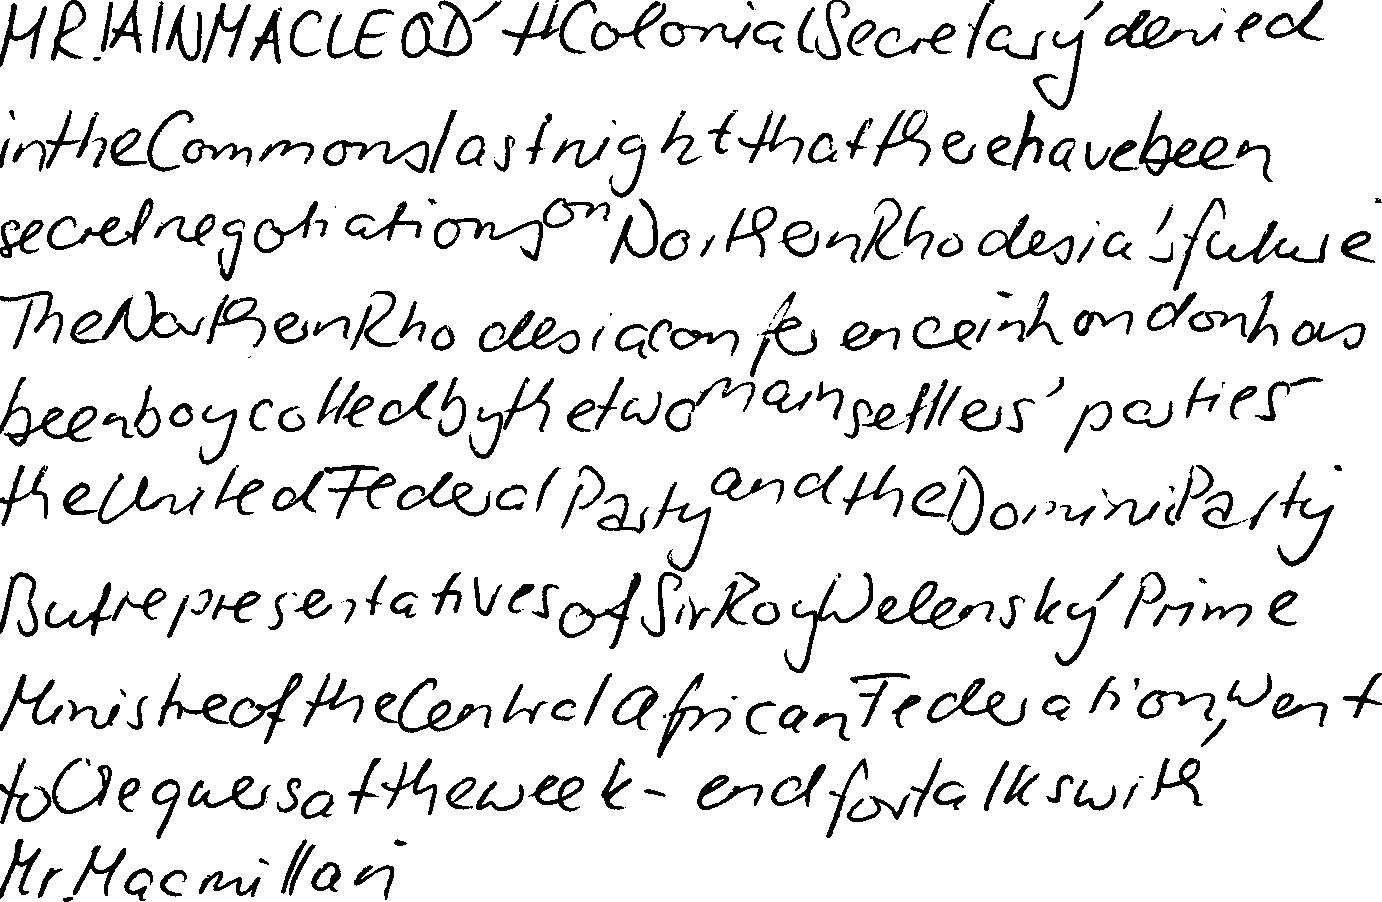 MR. IAIN MACLEOD' tt Colonial Secretary' denied
in the Commons last night that there have been
secret negotiations on Northern Rhodesia's future
The Northern Rhodesia conference in London has
been boycotted by the two main settlers' parties -
the United Federal Party and the Dominio Party
But representatives of Sir Roy Welensky' Prime
Ministre of the Central African Federation, went
to Chequers at the week - end for talks with
Mr. Macmillan